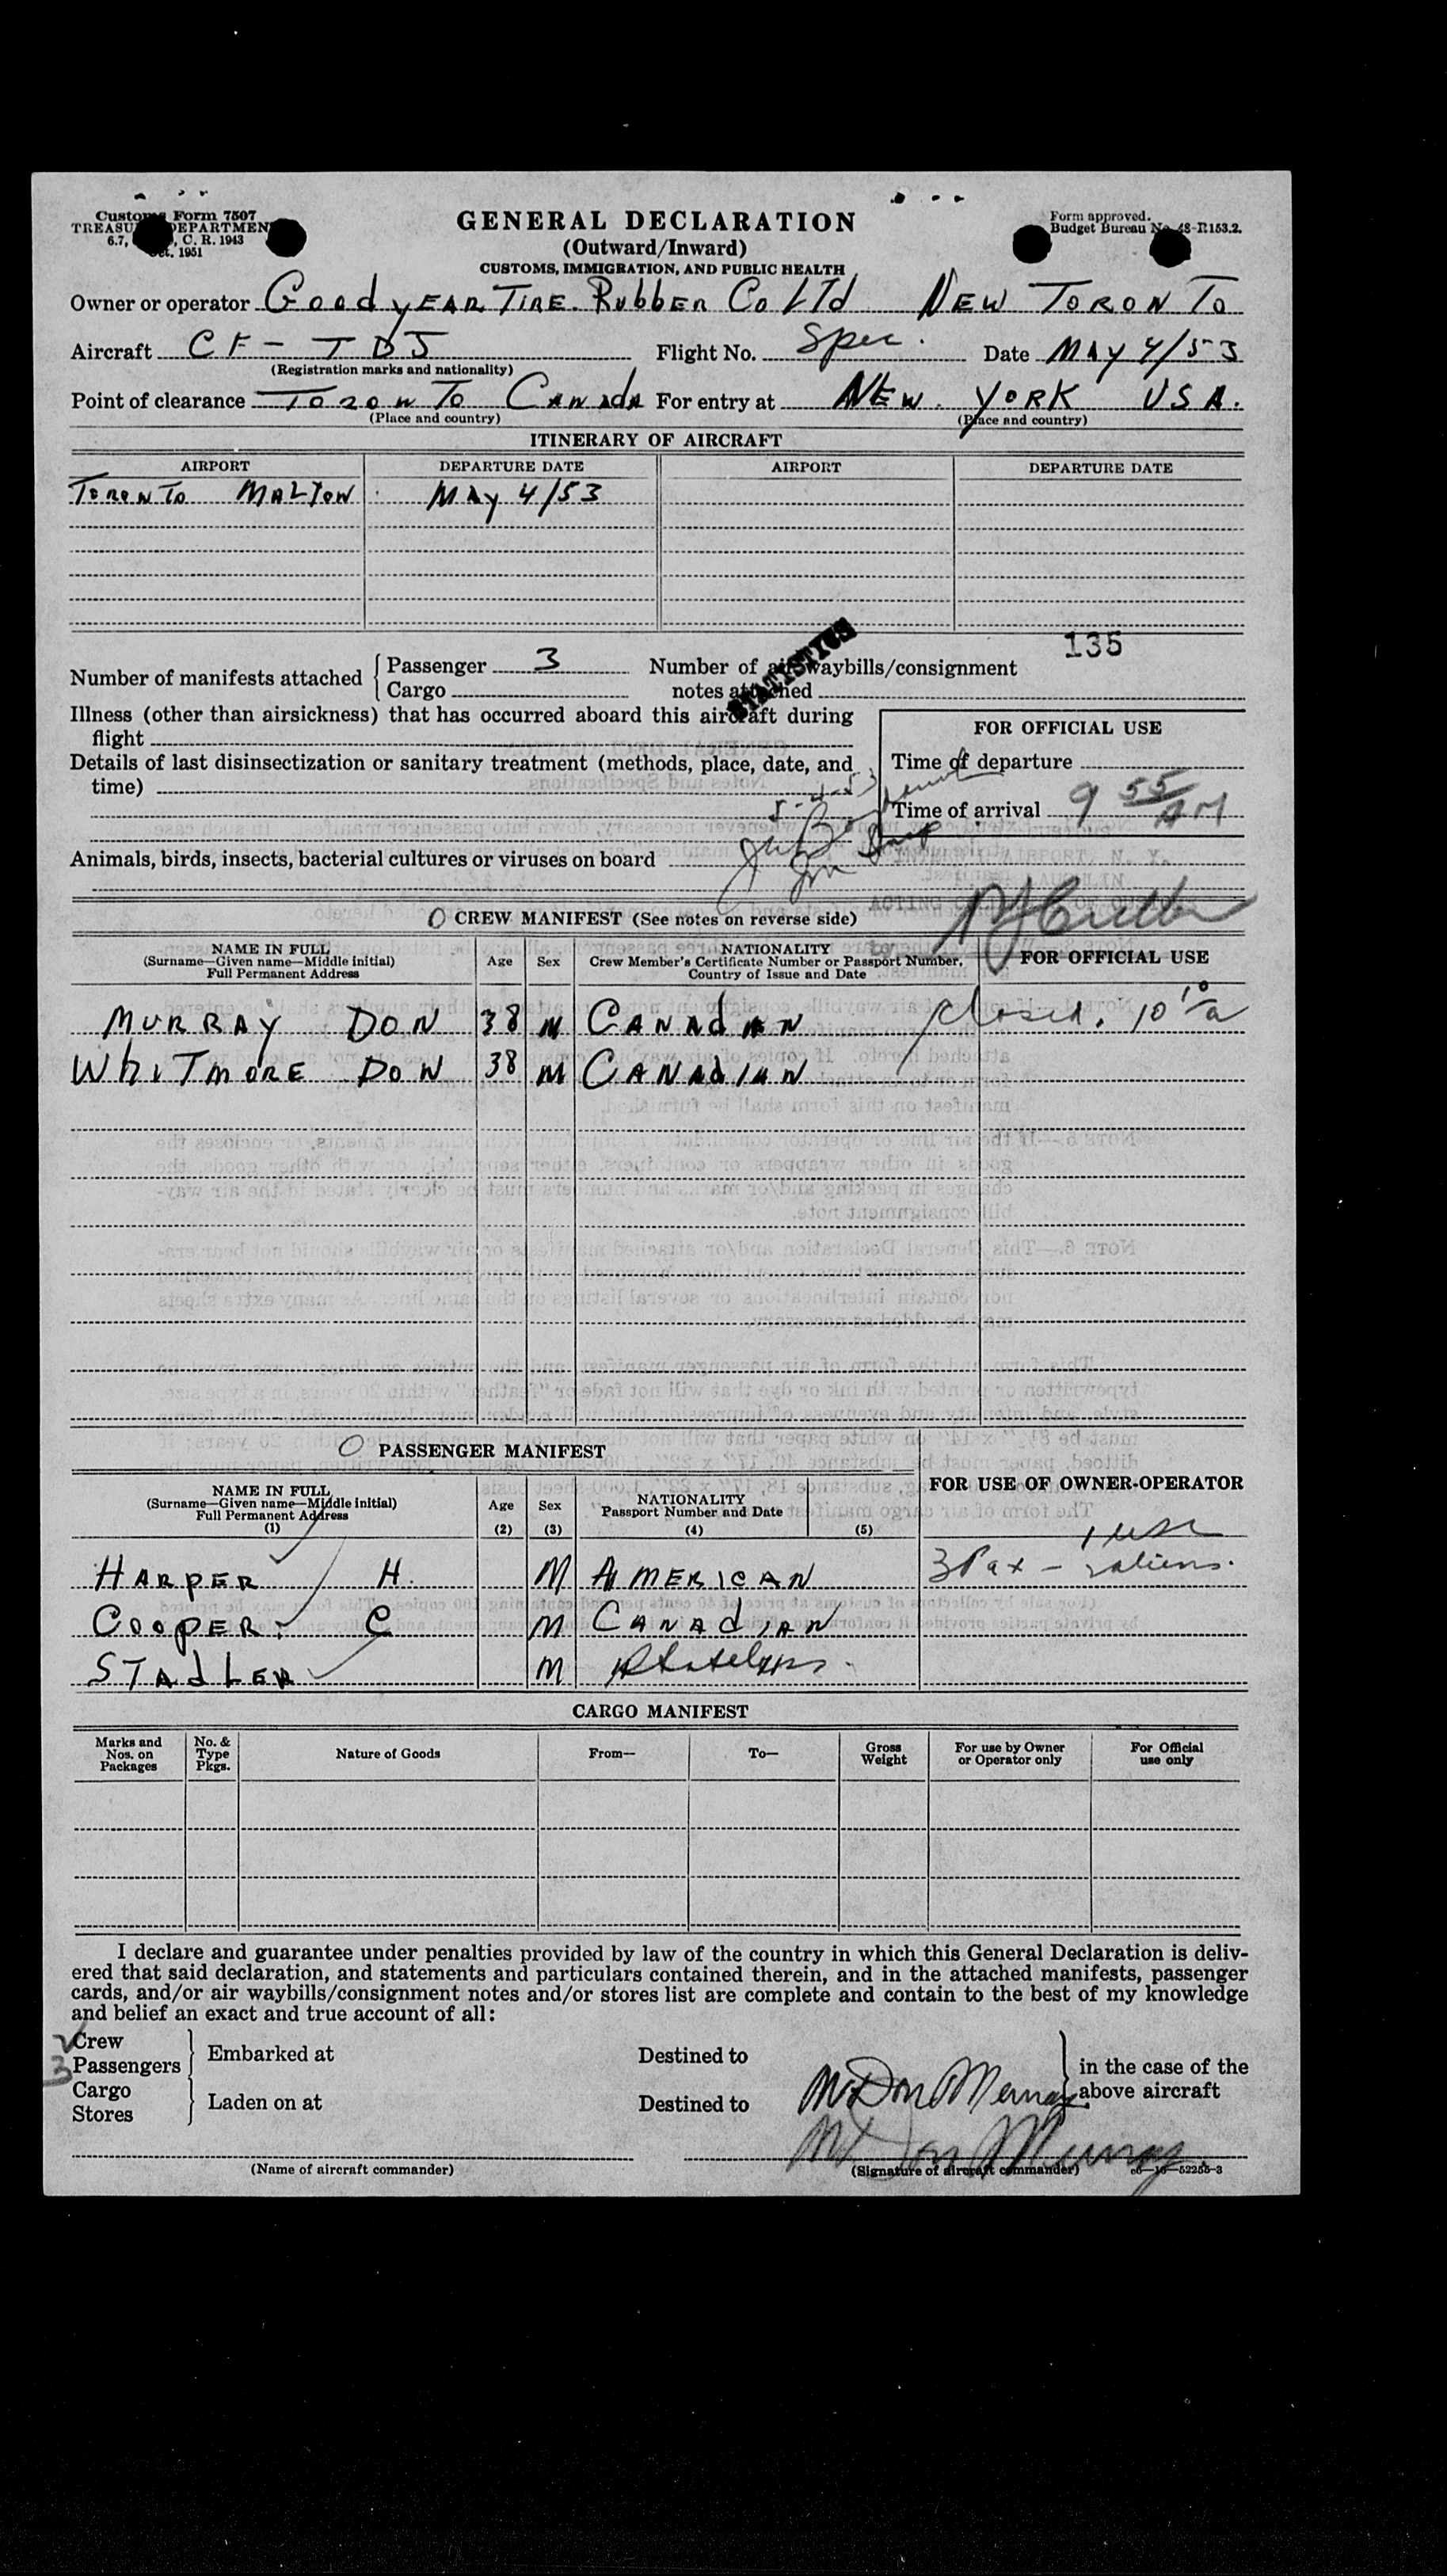 Customs Form 7507
TREASURY DEPARTMENT
6.7, C. R. 1943
Oct. 1951
GENERAL DECLARATION
(Outward/Inward)
CUSTOMS, IMMIGRATION, AND PUBLIC HEALTH
Form approved.
Budget Bureau No. 48-R153.2.
Owner or operator Goodyear Tire Rubber Co Ltd New Toronto
Aircraft CF-TDJ Flight No. Spec. Date May 4/53
(Registration marks and nationality)
Point of clearance Toronto Canada For entry at New York USA.
(Place and country) (Place and country)
ITINERARY OF AIRCRAFT
AIRPORT DEPARTURE DATE AIRPORT DEPARTURE DATE
Toronto Malton May 4/53
135
Number of manifests attached Passenger 3 Number of air waybills/consignment
Cargo notes attached
STATISTICS
Illness (other than airsickness) that has occurred aboard this aircraft during
flight
FOR OFFICIAL USE
Details of last disinsectization or sanitary treatment (methods, place, date, and
time)
Time of departure
5-4-53
Time of arrival 9 55 AM
Animals, birds, insects, bacterial cultures or viruses on board
O CREW MANIFEST (See notes on reverse side)
NAME IN FULL
(Surname—Given name—Middle initial)
Full Permanent Address
Age Sex
NATIONALITY
Crew Member's Certificate Number or Passport Number,
Country of Issue and Date
FOR OFFICIAL USE
MURRAY DON 38 M CANADIAN closed. 10 10 a
WHITMORE DON 38 M CANADIAN
O PASSENGER MANIFEST
FOR USE OF OWNER-OPERATOR
NAME IN FULL
(Surname—Given name—Middle initial)
Full Permanent Address
(1)
Age
(2)
Sex
(3)
NATIONALITY
Passport Number and Date
(4) (5)
1 USC
HARPER H. M AMERICAN 3 Pax - 2 aliens.
COOPER. C M CANADIAN
STADLER M Stateless.
CARGO MANIFEST
Marks and Nos. on Packages
No. & Type Pkgs.
Nature of Goods
From—
To—
Gross Weight
For use by Owner or Operator only
For Official use only
I declare and guarantee under penalties provided by law of the country in which this General Declaration is deliv-
ered that said declaration, and statements and particulars contained therein, and in the attached manifests, passenger
cards, and/or air waybills/consignment notes and/or stores list are complete and contain to the best of my knowledge
and belief an exact and true account of all:
2 Crew
3 Passengers Embarked at Destined to in the case of the
Cargo above aircraft
Stores Laden on at Destined to
Mr Don Murray
Mr Don Murray
(Name of aircraft commander) (Signature of aircraft commander) c6—16—52255-3